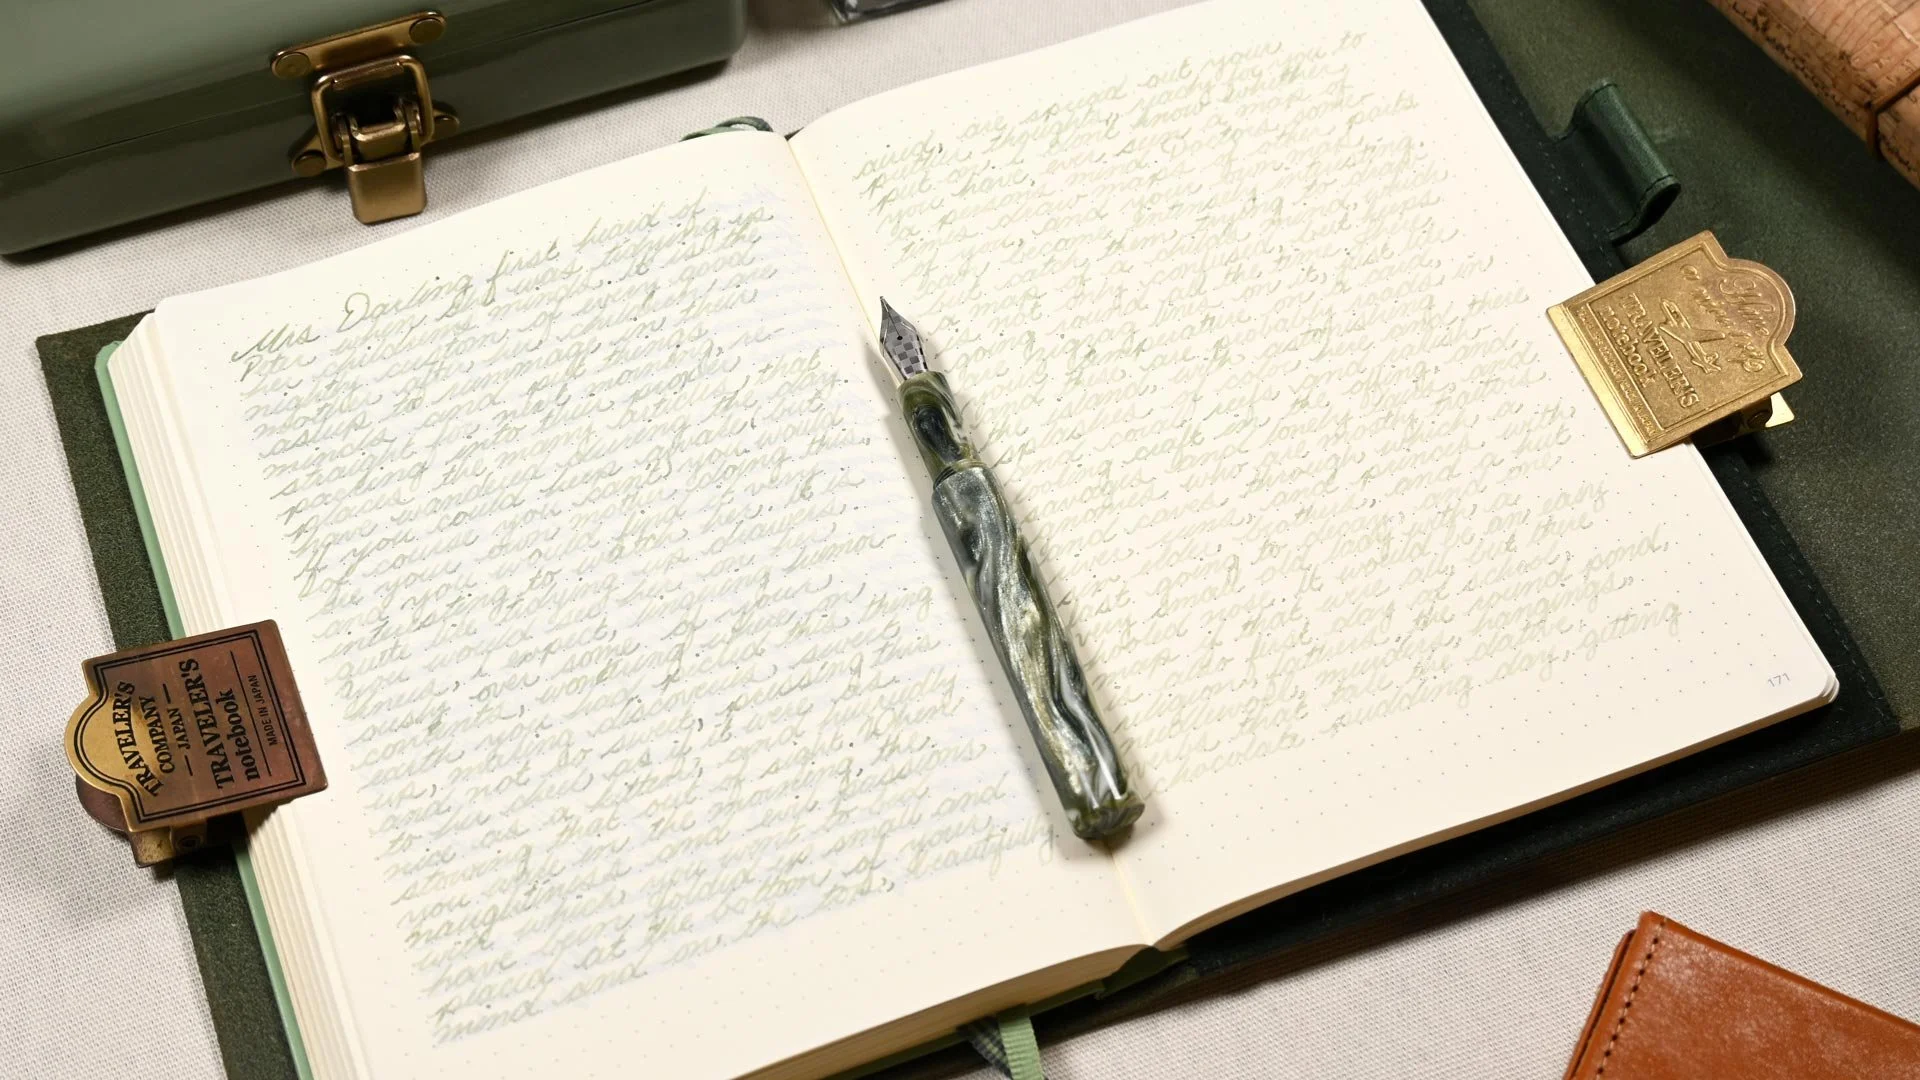 Mrs. Darling first heard of
Peter when she was tidying up
her childrens minds. It is the
nightly custom of every good
mother after her children are
asleep to rummage in their
minds and put things
straight for next morning, re-
packing into their proper
places the many articles that
have wandered during the day.
If you could keep awake (but
of course you cant) you would
see your own mother doing this,
and you would find it very
interesting to watch her. It is
quite like tidying up drawers.
You would see her on her
knees, I expect, lingering humor-
ously over some of your
contents, wondering where on
earth you had picked this thing
up, making discoveries
and not so sweet, pressing this
to her cheek as if it were as
nice as a kitten, and hurriedly
stowing that out of sight. When
you wake in the morning, the
naughtiness and evil passions
with which you went to bed
have been folded up small and
placed at the bottom of your
mind and on the top, beautifully
aired, are spread out your
prettier thoughts, ready for you to
put on. I dont know whether
you have ever seen a map of
a persons mind. Doctors some-
times draw maps of other parts
of you, and your own map
can become intensely interesting,
but catch them trying to draw
a map of a childs mind, which
is not only confused, but keeps
going round all the time. There
zigzag lines on it, just like
temperature on a card,
and these are probably roads in
island,
astonishing splashes of color here and there
and coral reefs and rakish-
looking craft in the offing, and
savages and lonely lairs, and
gnomes who are mostly tailors,
and caves through which a
river runs, and princes with
elder brothers, and a hut
fast going to decay, and one
very small old lady with a
hooked nose. It would be an easy
map if that were all, but there
is also first day at school,
religion, fathers, the round pond,
needlework, murders, hangings,
verbs that take the dative, getting
chocolate pudding day,
171
TRAVELER'S
COMPANY
JAPAN
TRAVELER'S
notebook
MADE IN JAPAN
TRAVELER'S
notebook